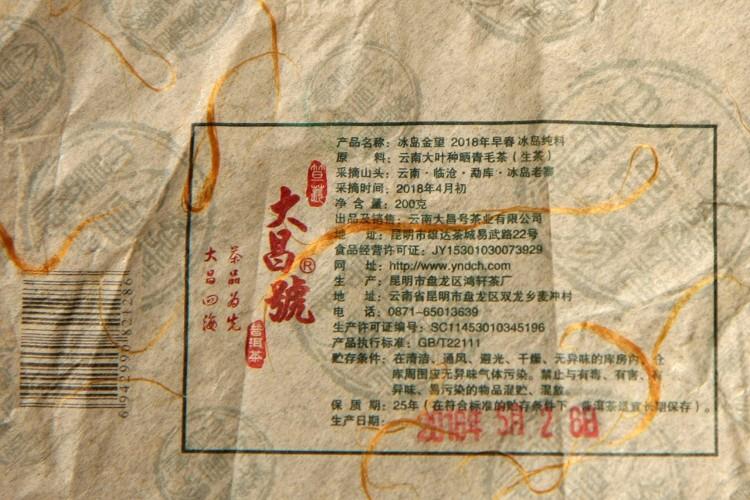 茶品为先
大昌四海
普洱茶
大昌號®
产品名称：冰岛金望 2018年早春冰岛纯料
原 料：云南大叶种晒青毛茶（生茶）
采摘山头：云南·临沧·勐库·冰岛老寨
采摘时间：2018年4月初
净 含 量：200克
出品及销售：云南大昌号茶业有限公司
地 址：昆明市雄达茶城易武路22号
食品经营许可证：JY15301030073929
网 址：http://www.yndch.com
生 产：昆明市盘龙区鸿轩茶厂
地 址：云南省昆明市盘龙区双龙乡麦冲村
电 话：0871-65013639
生产许可证编号：SC11453010345196
产品执行标准：GB/T22111
贮存条件：在清洁、通风、避光、干燥、无异味的库房内，仓
库周围应无异味气体污染。禁止与有毒、有害、有
异味、易污染的物品混贮、混放。
保 质 期：25年（在符合标准的贮存条件下，普洱茶适宜长期保存）。
生产日期：2018年 5月 2 8日